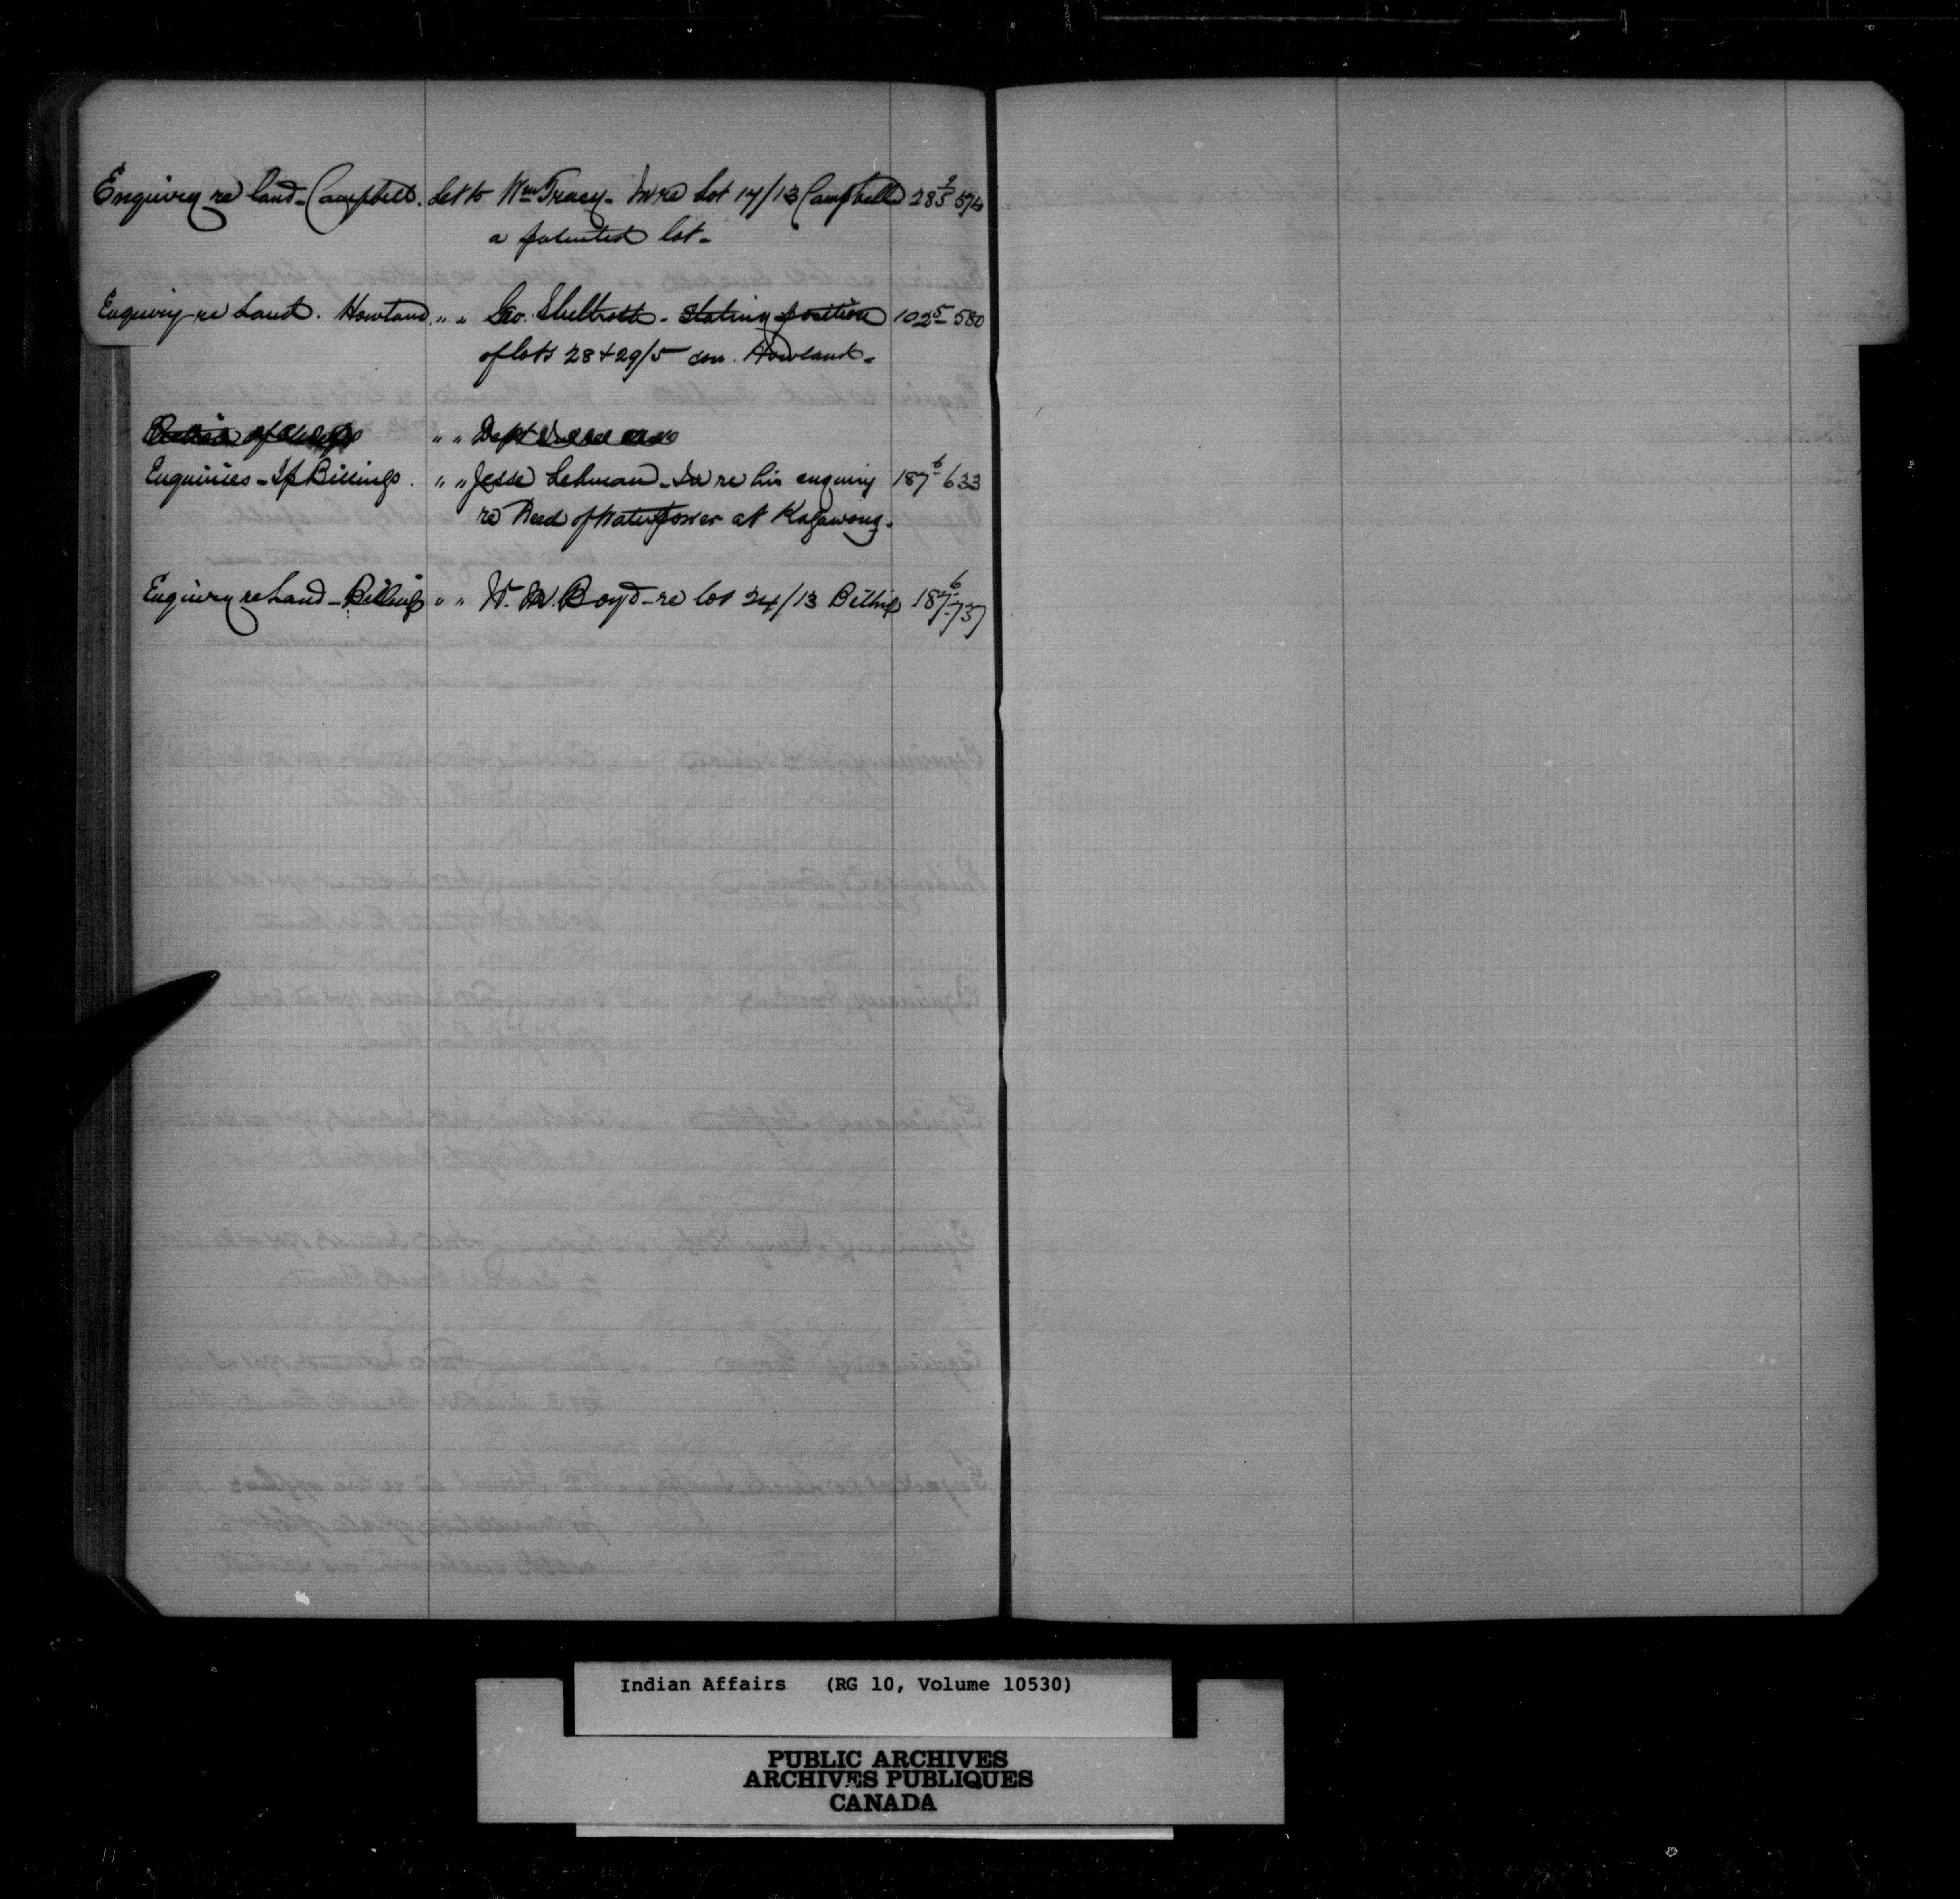 Enquiry re land - Campbell. Let to Wm Tracy - In re Lot 14/13 Campbell 285 576
a patented lot -
Enquiry re Land. Howland " " Geo. Shelltroth - Stating position 102 5 580
of lots 28 + 29/5 con. Howland -
" " Dept
Enquiries - Tp Billings. " " Jesse Lehman - In re his enquiry 187 6 633
re Deed of Waterpower at Kagawong -
Enquiry re Land - Billings " " W. M. Boyd - re lot 24/13 Billings 187 6 737
Indian Affairs (RG 10, Volume 10530)
PUBLIC ARCHIVES
ARCHIVES PUBLIQUES
CANADA